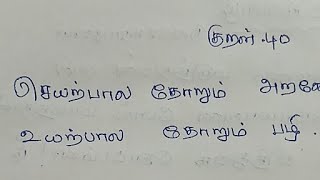 குறள் .40
செயற்பால தோறும் அறனே
உயற்பால தோறும் பழி .